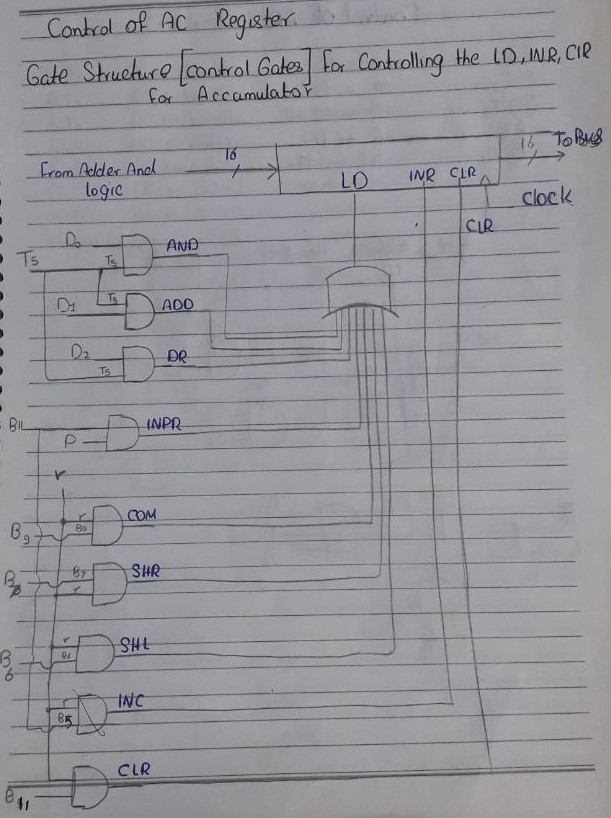 Control of AC Register
Gate Structure [control Gates] For Controlling the LD, INR, CLR
for Accumulator
From Adder And
logic
16
16
To Bus
LD
INR
CLR
Clock
CLR
D0
T5
T5
AND
D1
T5
ADD
D2
T5
DR
B11
P
INPR
r
r
B9
B9
COM
B7
r
SHR
r
B6
B6
SHL
B5
INC
CLR
B11